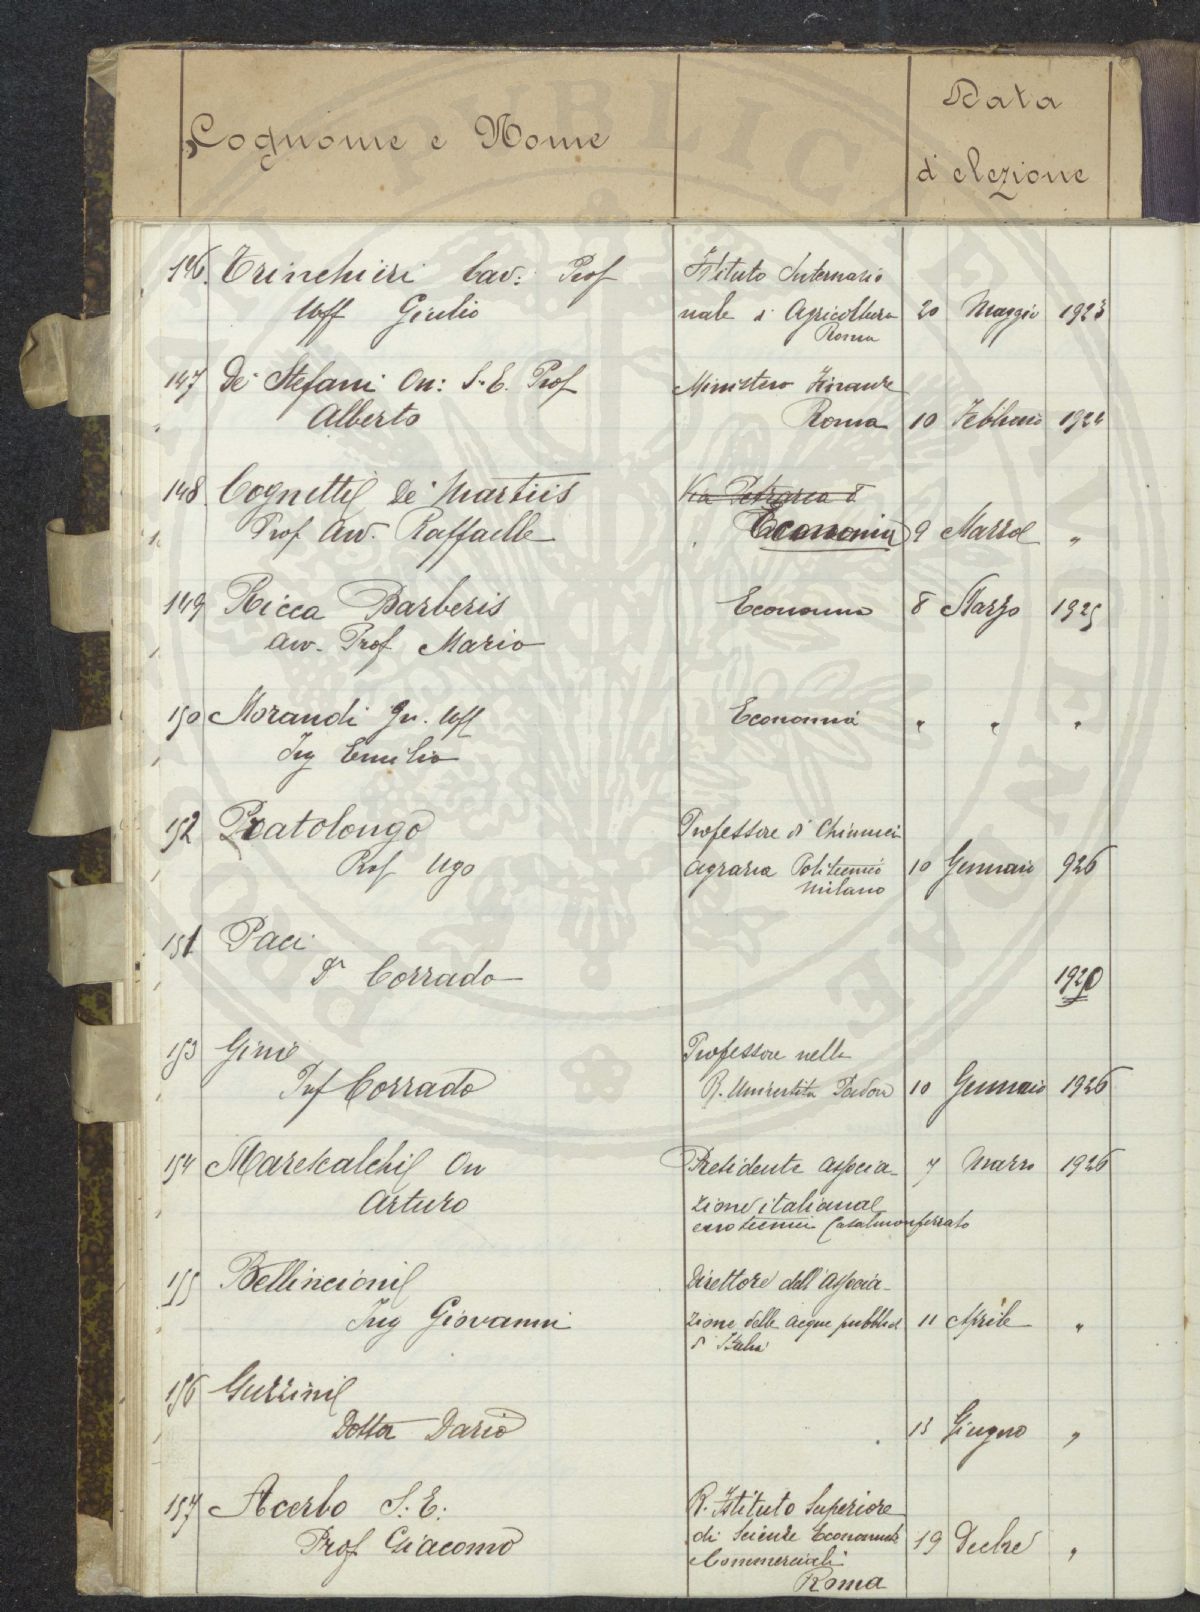 Cognome e Nome
Data
d'elezione
146. Trinchieri Cav: Prof Istituto Internazio
Uff Giulio nale d' Agricoltura 20 Maggio 1923
Roma
147 De Stefani On: S. E. Prof Ministero Finanze
Alberto Roma 10 Febbraio 1924
148. Cognetti De Martiis Via Petrarca 8
Prof Avv. Raffaelle Economia 9 Marzo "
149 Ricca Barberis Economia 8 Marzo 1925
avv. Prof Mario
150 Morandi Gr. Uff Economia " " "
Ing Emilio
152 Pratolongo Professore di Chimica
Prof Ugo agraria Politecnico 10 Gennaio 926
Milano
151 Paci
Dr Corrado 1920
153 Gini Professore nella
Prof Corrado R. Università Padova 10 Gennaio 1926
154 Marescalchi On Presidente associa- 7 Marzo 1926
Arturo zione italiana
enotecnici Casalmonferrato
155 Bellincioni Direttore dell'Associa-
Ing Giovanni zione delle acque pubbliche 11 Aprile "
d' Italia
156 Guzzini
Dottor Dario 13 Giugno "
157 Acerbo S. E. R. Istituto Superiore
Prof Giacomo di Scienze Economiche 19 Decbre "
Commerciali
Roma
PROVEHENDAE
PUBLICE